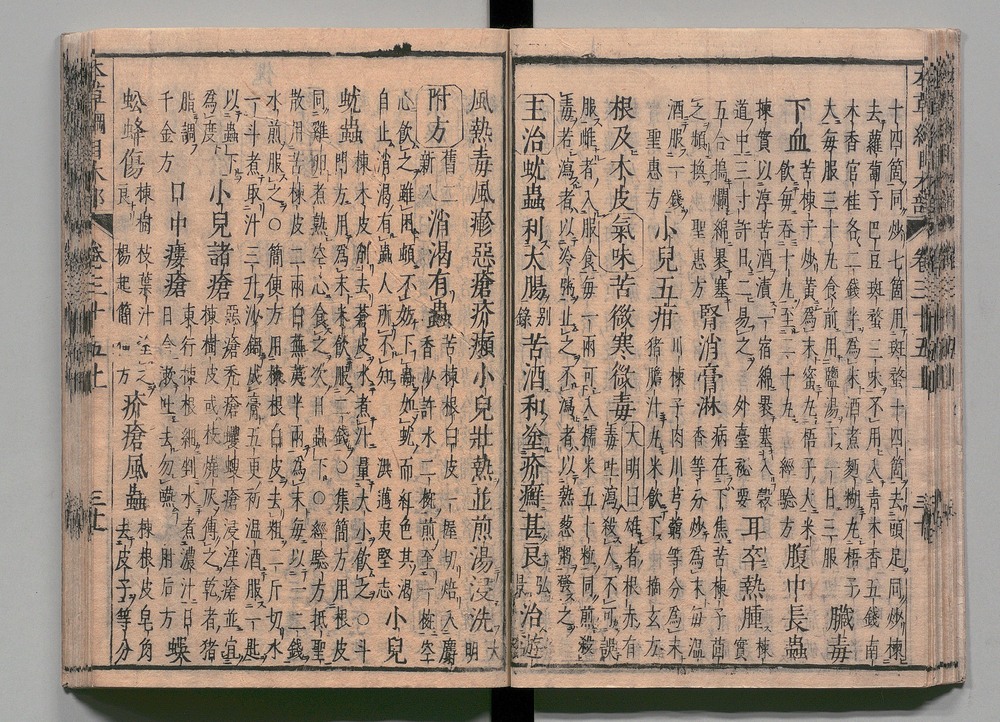 十四箇同炒七箇用斑蝥十四箇去頭足同炒楝
去蘿蔔子巴豆斑蝥三味不用入青木香五錢南
木香官桂各二錢半為末酒煮麫糊丸梧子
大每服三十丸食前用鹽湯下一日三服 臟毒
下血 苦楝子炒黃為末蜜丸梧子大米
飲每吞十丸至二十丸 經驗方 腹中長蟲
楝實以淳苦酒漬一宿綿裹塞入穀
道中三寸許日二易之 外臺秘要 耳卒熱腫 楝實
五合搗爛綿裹塞
之頻換 聖惠方 腎消膏淋 病在下焦苦楝子茴
香等分炒為末每溫
酒服一錢
聖惠方 小兒五疳 川楝子肉川芎藭等分為末
猪膽汁丸米飲下 摘玄方
根及木皮 氣味 苦微寒微毒 大明曰雄者根赤有
毒吐瀉殺人不可誤
服雌者入服食每一兩可入糯米五十粒同煎殺
毒若瀉者以冷粥止之不瀉者以熱葱粥發之
主治 蚘蟲利大腸 别錄 苦酒和塗疥癬甚良 弘景 治遊
風熱毒風疹惡瘡疥癩小兒壯熱並煎湯浸洗 大明
附方 舊二
新八 消渴有蟲 苦楝根白皮一握切焙入麝
香少許水二椀煎至一椀空
心飲之雖困頓不妨下蟲如蚘而紅色其渴
自止消渴有蟲人所不知 洪邁夷堅志 小兒
蚘蟲 楝木皮削去蒼皮水煮汁量大小飲之〇斗
門方用為末米飲服二錢〇集簡方用根皮
同雞卵煮熟空心食之次日蟲下〇經驗方抵聖
散用苦楝皮二兩白蕪荑半兩為末每以一二錢
水煎服之〇簡便方用楝根白皮去粗二斤切水
一斗煮取汁三升沙鍋成膏五更初溫酒服一匙
以蟲下
為度 小兒諸瘡 惡瘡禿瘡蠼螋瘡浸淫瘡並宜
楝樹皮或枝燒灰傅之乾者猪
脂調
千金方 口中瘻瘡 東行楝根細剉水煮濃汁日
日含漱吐去勿嚥 肘后方 蝶
蚣蜂傷 楝樹枝葉汁塗之
良 楊起簡便方 疥瘡風蟲 楝根皮皂角
去皮子等分
本草綱目木部 卷三十五上